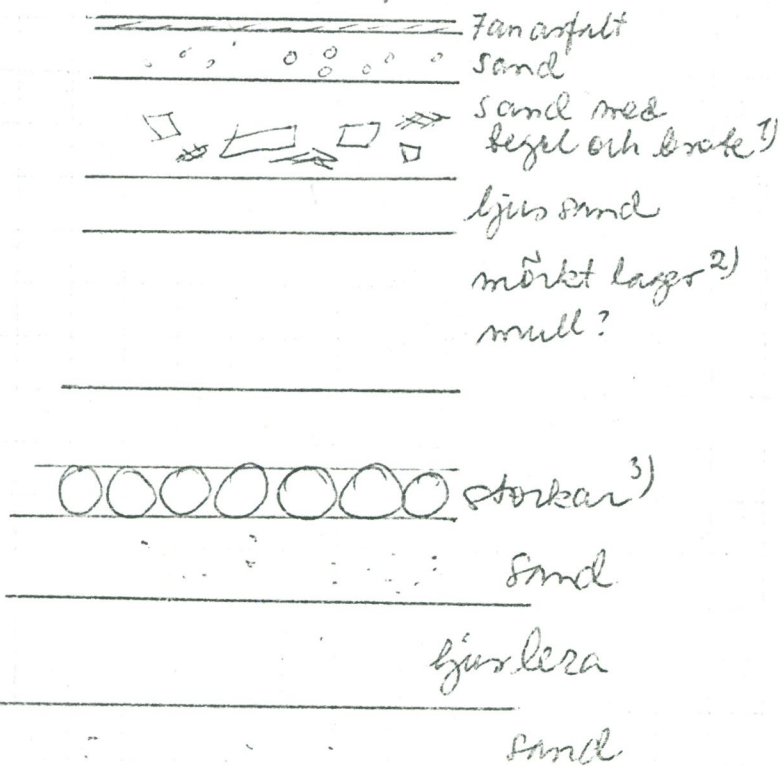 7 cm asfalt
sand
sand med
tegel och bråte 1)
ljus sand
mörkt lager 2)
mull?
stockar 3)
sand
ljus lera
sand